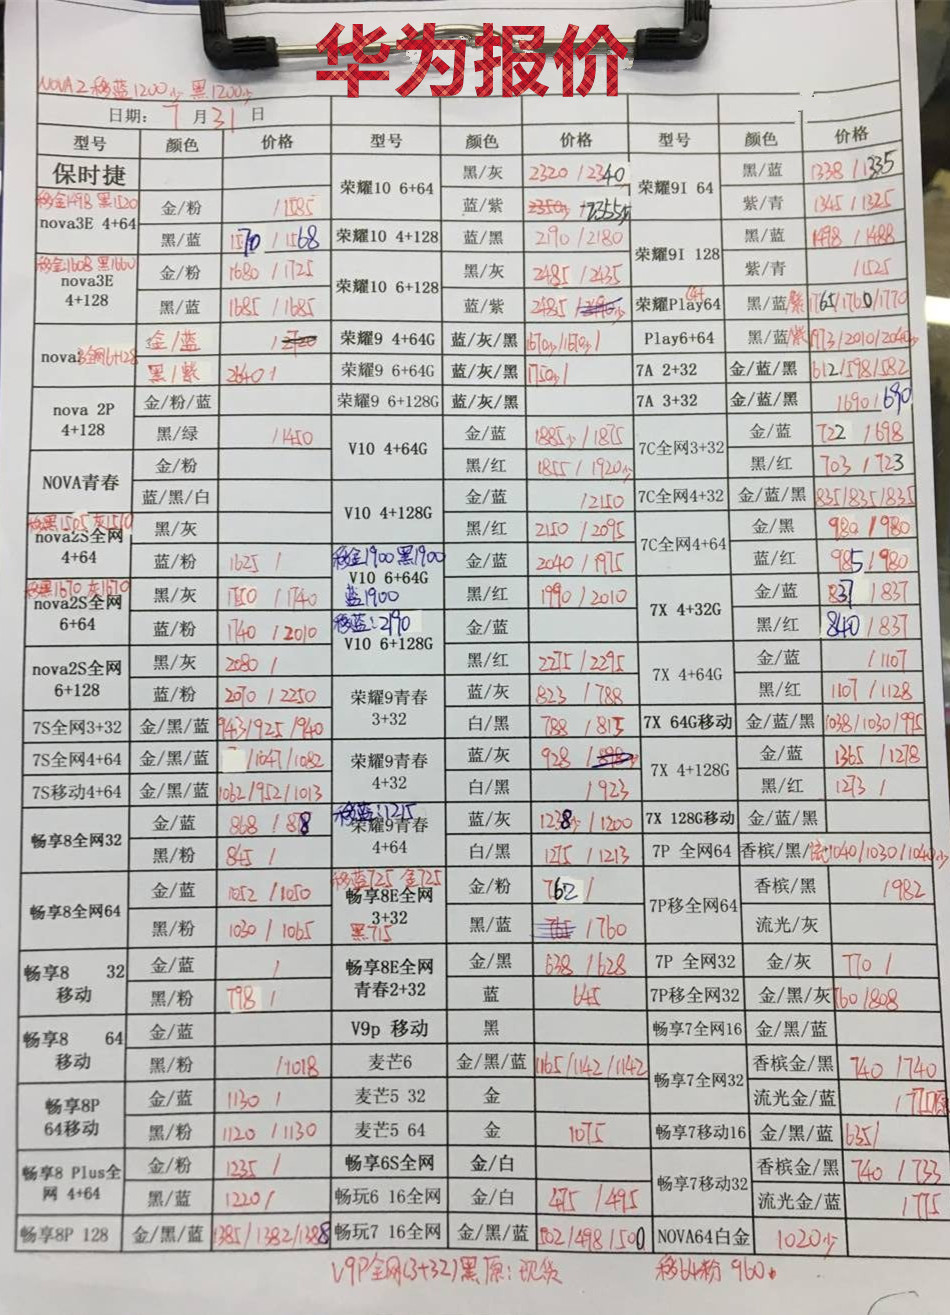 华为报价
NOVA2移蓝1200少 黑1200少
日期: 7月31日
型号 颜色 价格 型号 颜色 价格 型号 颜色 价格
保时捷
移金1498 黑1520
nova3E 4+64 金/粉 /1585
黑/蓝 1570/1568
移金1608 黑1660
nova3E 4+128 金/粉 1680/1725
黑/蓝 1685/1685
金/蓝
黑/紫 2640/
nova 2P 4+128 金/粉/蓝
黑/绿 /1450
NOVA青春 金/粉
蓝/黑/白
移黑1505 灰1510
nova2S全网 4+64 黑/灰
蓝/粉 1625/
移黑1670 灰1670
nova2S全网 6+64 黑/灰 1750/1740
蓝/粉 1740/2010
nova2S全网 6+128 黑/灰 2080/
蓝/粉 2070/2250
7S全网3+32 金/黑/蓝 943/925/940
7S全网4+64 金/黑/蓝 /1047/1082
7S移动4+64 金/黑/蓝 1062/952/1013
畅享8全网32 金/蓝 868/878
黑/粉 845/
畅享8全网64 金/蓝 1052/1050
黑/粉 1030/1065
畅享8 32移动 金/蓝 /
黑/粉 798/
畅享8 64移动 金/蓝
黑/粉 /1018
畅享8P 64移动 金/蓝 1130/
黑/粉 1120/1130
畅享8 Plus全网 4+64 金/粉 1235/
黑/蓝 1220/
畅享8P 128 金/黑/蓝 1385/1382/1388
荣耀10 6+64 黑/灰 2320/2340
蓝/紫 2355
荣耀10 4+128 蓝/黑 2190/2180
荣耀10 6+128 黑/灰 2485/2435
蓝/紫 2485
荣耀9 4+64G 蓝/灰/黑 1670少/1670少/
荣耀9 6+64G 蓝/灰/黑 1750少/
荣耀9 6+128G 蓝/灰/黑
V10 4+64G 金/蓝 1885少/1875
黑/红 1855/1920少
V10 4+128G 金/蓝 /2150
黑/红 2150/2095
移金1900 黑1900
V10 6+64G 金/蓝 2040/1975
蓝1900 黑/红 1990/2010
移蓝:2190
V10 6+128G 金/蓝
黑/红 2275/2295
荣耀9青春 3+32 蓝/灰 823/788
白/黑 788/815
荣耀9青春 4+32 蓝/灰 928
白/黑 /923
移蓝:1215
荣耀9青春 4+64 蓝/灰 1238/1200
白/黑 1275/1213
移蓝725 金725
畅享8E全网 3+32 金/粉 762/
黑715 黑/蓝 /760
畅享8E全网 青春2+32 金/黑 638/628
蓝 645
V9p 移动 黑
麦芒6 金/黑/蓝 1165/1142/1142
麦芒5 32 金
麦芒5 64 金 1075
畅享6S全网 金/白
畅玩6 16全网 金/白 475/495
畅玩7 16全网 金/黑/蓝 502/498/500
荣耀9I 64 黑/蓝 1338/1335
紫/青 1345/1325
荣耀9I 128 黑/蓝 1498/1488
紫/青 /1525
荣耀Play64 黑/蓝/紫 1765/1760/1770
Play6+64 黑/蓝/紫 1973/2010/2040少
7A 2+32 金/蓝/黑 612/598/582
7A 3+32 金/蓝/黑 /690/690
7C全网3+32 金/蓝 722/698
黑/红 703/723
7C全网4+32 金/蓝/黑 835/835/835
7C全网4+64 金/黑 980/980
蓝/红 985/980
7X 4+32G 金/蓝 837/837
黑/红 840/837
7X 4+64G 金/蓝 /1107
黑/红 1107/1128
7X 64G移动 金/蓝/黑 1038/1030/995
7X 4+128G 金/蓝 1365/1278
黑/红 1273/
7X 128G移动 金/蓝/黑
7P 全网64 香槟/黑/ 1040/1030/1040少
7P移全网64 香槟/黑 /982
流光/灰
7P 全网32 金/灰 770/
7P移全网32 金/黑/灰 760/808
畅享7全网16 金/黑/蓝
畅享7全网32 香槟金/黑 740/740
流光金/蓝
畅享7移动16 金/黑/蓝 635/
畅享7移动32 香槟金/黑 740/733
流光金/蓝 /775
NOVA64白金 1020少
V9P全网(3+32)黑 原:现货 移64粉 960